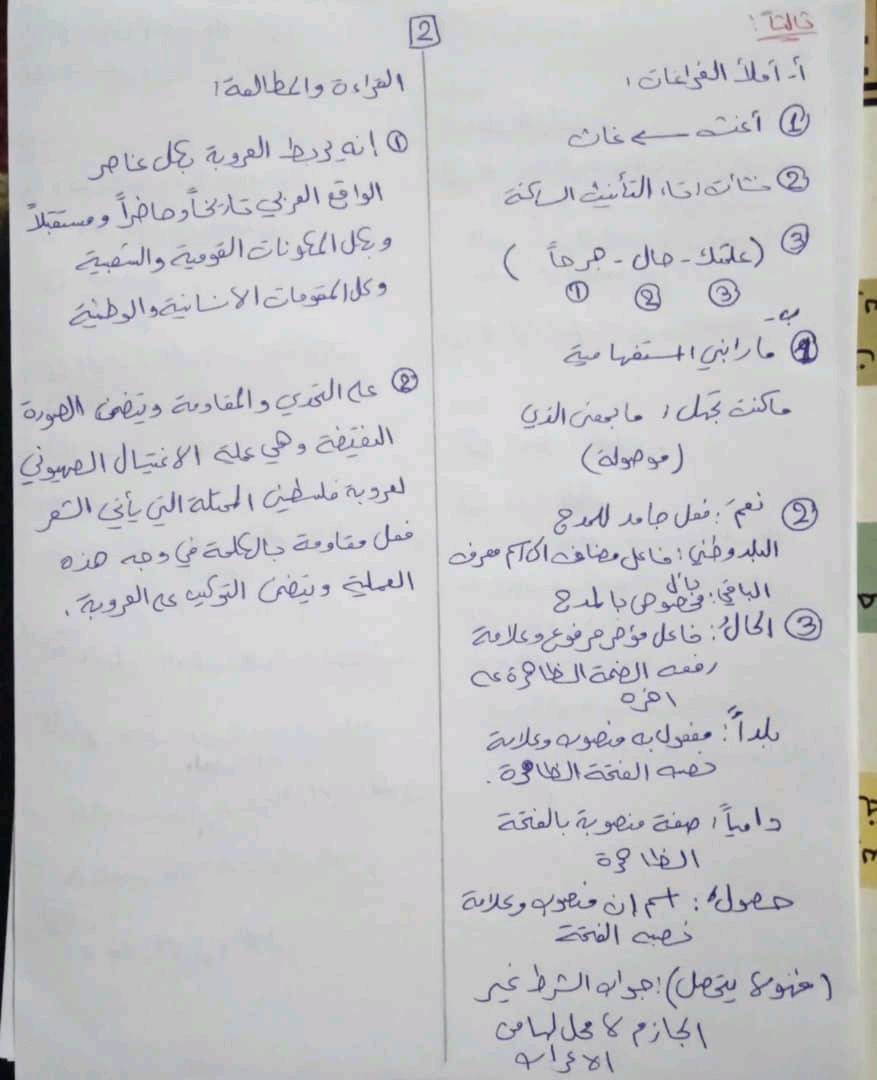 2
ثالثاً:
أ- أملأ الفراغات:
① أغنت ← غات
② تاء التأنيث الساكنة
③ (علمتك - حال - جرحاً)
① ② ③
ب-
① ما رابني استفهامية
ما كنت تجهل: ما بمعنى الذي
(موصولة)
② نعمَ: فعل جامد للمدح
البلد وطني: فاعل مضاف الى اسم معرف
بال
الباقي: مخصوص بالمدح
③ الحالُ: فاعل مؤخر مرفوع وعلامة
رفعه الضمة الظاهرة على
اخره
بلداً: مفعول به منصوب وعلامة
نصبه الفتحة الظاهرة.
دامياً: صفة منصوبة بالفتحة
الظاهرة
حصول: اسم ان منصوب وعلامة
نصبه الفتحة
(فهو لا يتحصل): جواب الشرط غير
الجازم لا محل لها من
الاعراب
القراءة والمطالعة:
① إنه يربط العروبة بكل عناصر
الواقع العربي تاريخاً وحاضراً ومستقبلاً
وبكل المكونات القومية والشعبية
وكل المقومات الانسانية والوطنية
② على التحدي والمقاومة ويتضمن الصورة
النقيضة وهي عملية الاغتيال الصهيوني
لعروبة فلسطين المحتلة التي يأتي الشعر
فعل مقاومة بالكلمة في وجه هذه
العملية ويتضمن التركيب على العروبة.